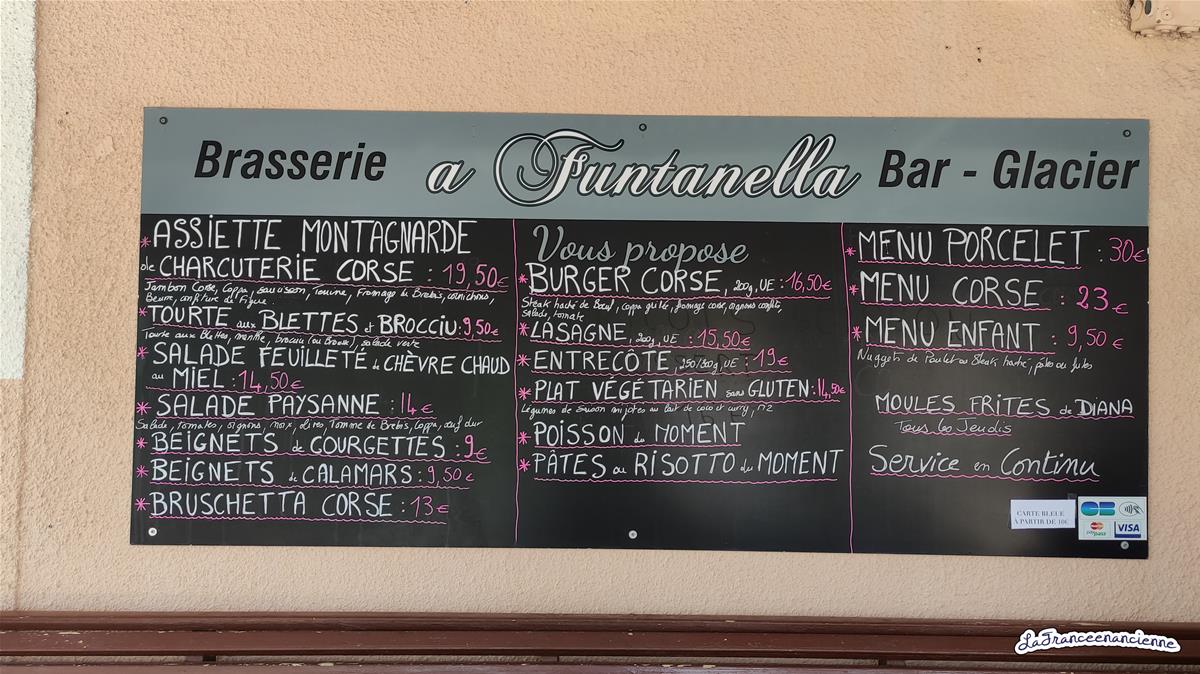 Brasserie a Funtanella Bar - Glacier
* ASSIETTE MONTAGNARDE
de CHARCUTERIE CORSE : 19,50€
Jambon Corse, Coppa, saucisson, Terrine, Fromage de Brebis, cornichons,
Beurre, confiture de Figue
* TOURTE aux BLETTES et BROCCIU : 9,50€
Tourte aux Blettes, menthe, brocciu (ou Brousse), salade verte
* SALADE FEUILLETÉ de CHÈVRE CHAUD
au MIEL : 14,50€
* SALADE PAYSANNE : 14€
Salade, tomates, oignons, noix, olives Tomme de Brebis, Coppa, œuf dur
* BEIGNETS de COURGETTES : 9€
* BEIGNETS de CALAMARS : 9,50€
* BRUSCHETTA CORSE : 13€
Vous propose
* BURGER CORSE, 200g, UE : 16,50€
Steak haché de Bœuf, coppa grillé, fromage corse, oignons confits,
salade, tomate
* LASAGNE, 200g, UE : 15,50€
* ENTRECÔTE, 250/300g, UE : 19€
* PLAT VÉGÉTARIEN sans GLUTEN : 14,50€
Légumes de Saison mijotés au lait de coco et curry, riz
* POISSON du MOMENT
* PÂTES ou RISOTTO du MOMENT
* MENU PORCELET : 30€
* MENU CORSE : 23€
* MENU ENFANT : 9,50€
Nuggets de Poulet ou Steak haché, pâtes ou frites
MOULES FRITES de DIANA
Tous les Jeudis
Service en Continu
CARTE BLEUE
A PARTIR DE 10€
CB
VISA
LaFranceenancienne